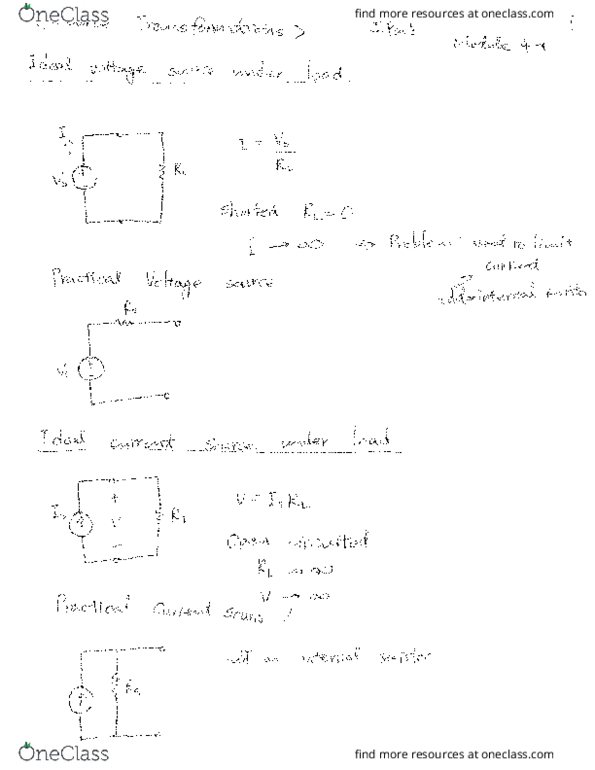 OneClass
find more resources at oneclass.com
Transformations >
Module 4-1
Ideal voltage source under load
I
I = Vs / RL
Vs
RL
Shorted RL = 0
I → ∞ => Problem! need to limit
current
Practical Voltage source
internal
Rs
Vs
Ideal current source under load
+
Is
V
RL
-
V = Is RL
Open circuited
RL → ∞
V → ∞
Practical Current source
an internal resistor
Rs
OneClass
find more resources at oneclass.com